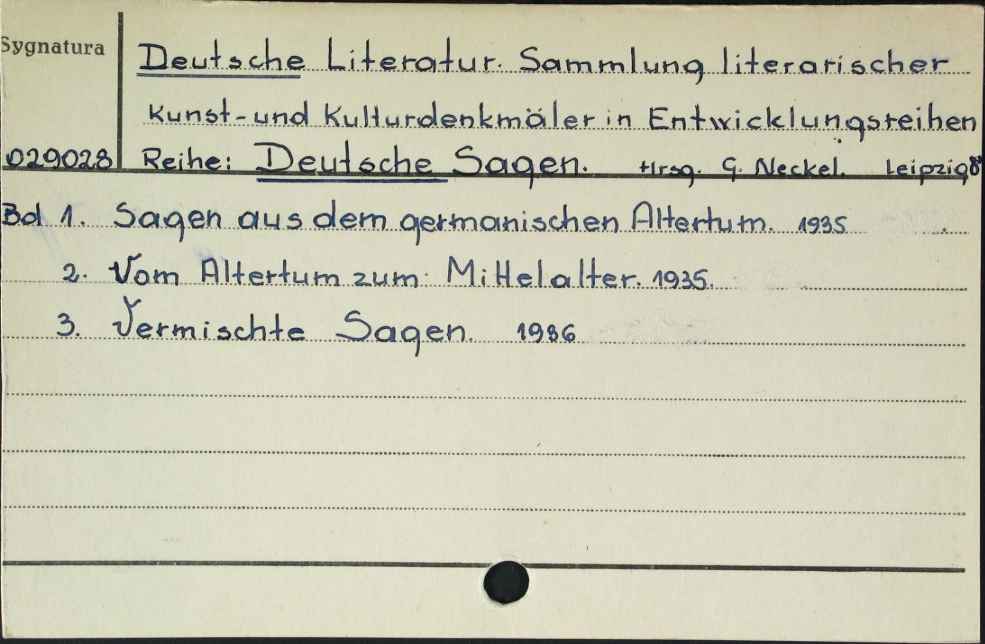 Sygnatura
Deutsche Literatur. Sammlung literarischer
Kunst- und Kulturdenkmäler in Entwicklungsreihen
029028 Reihe: Deutsche Sagen. Hrsg. G. Neckel. Leipzig 8°
Bd 1. Sagen aus dem germanischen Altertum. 1935
2. Vom Altertum zum Mittelalter. 1935.
3. Vermischte Sagen. 1936